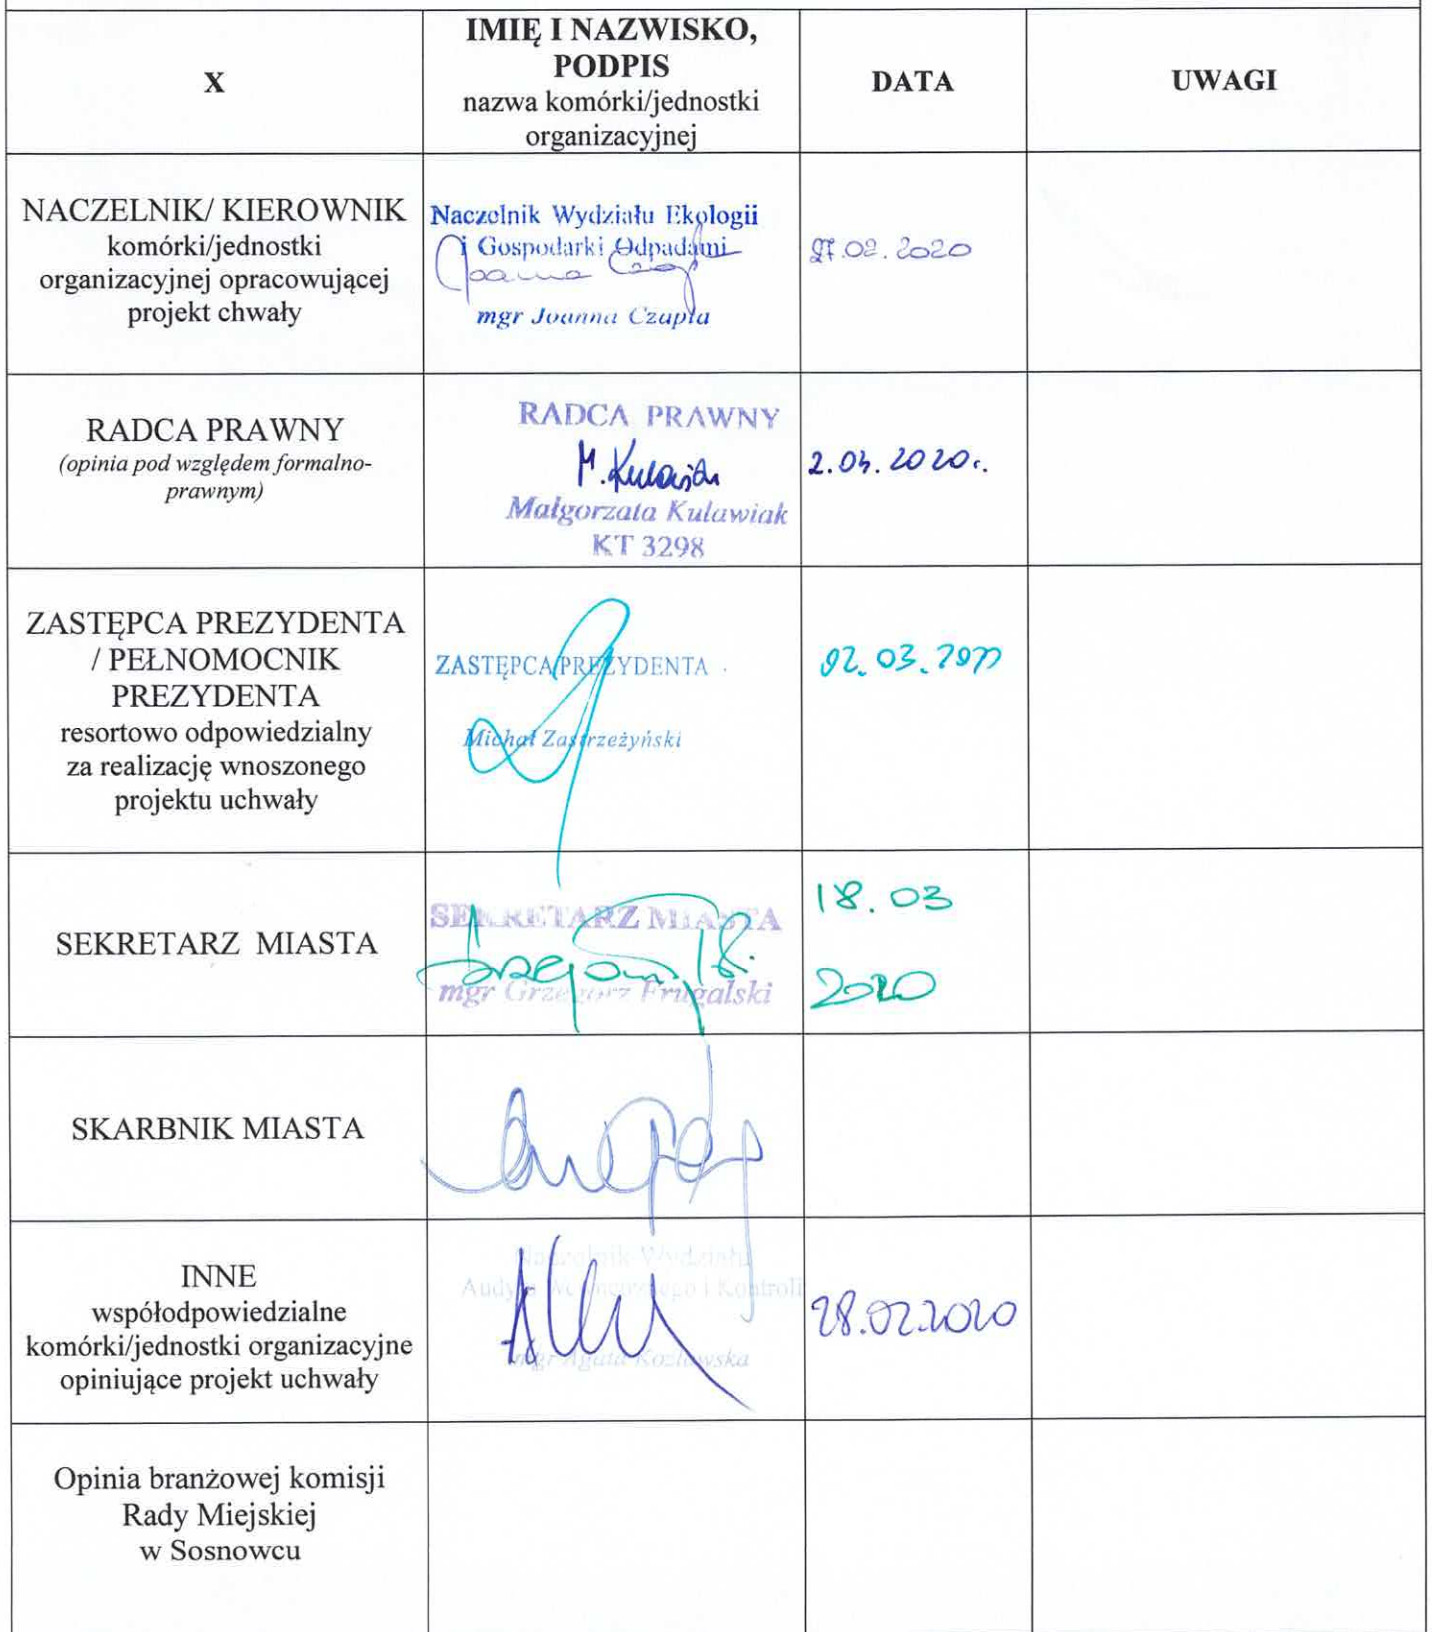 X
IMIĘ I NAZWISKO,
PODPIS
nazwa komórki/jednostki
organizacyjnej
DATA
UWAGI
NACZELNIK/ KIEROWNIK
komórki/jednostki
organizacyjnej opracowującej
projekt chwały
Naczelnik Wydziału Ekologii
i Gospodarki Odpadami
mgr Joanna Czapla
27.02.2020
RADCA PRAWNY
(opinia pod względem formalno-
prawnym)
RADCA PRAWNY
M. Kulawiak
Małgorzata Kulawiak
KT 3298
ZASTĘPCA PREZYDENTA
/ PEŁNOMOCNIK
PREZYDENTA
resortowo odpowiedzialny
za realizację wnoszonego
projektu uchwały
ZASTĘPCA PREZYDENTA
Michał Zastrzeżyński
02.03.
SEKRETARZ MIASTA
SEKRETARZ MIASTA
mgr Grzegorz Frugalski
18.03
2020
SKARBNIK MIASTA
INNE
współodpowiedzialne
komórki/jednostki organizacyjne
opiniujące projekt uchwały
Naczelnik Wydziału
Audytu Wewnętrznego i Kontroli
mgr Agata Kozłowska
28.02.2020
Opinia branżowej komisji
Rady Miejskiej
w Sosnowcu